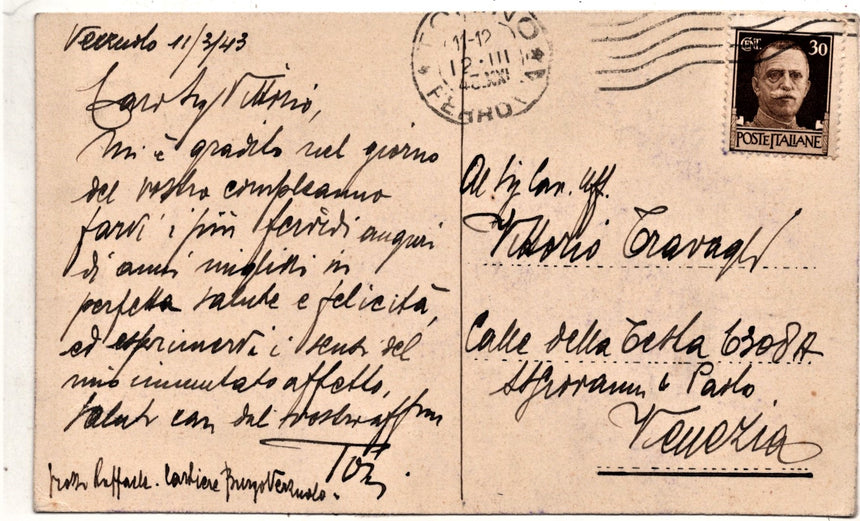 Verzuolo 11/3/43
Caro Sig Vittorio,
Mi è gradito nel giorno
del vostro compleanno
farvi i più fervidi auguri
di anni migliori in
perfetta salute e felicità,
ed esprimervi i sensi del
mio immutato affetto,
saluti cari dal vostro affmo
Raffaele. Cartiere Burgo Verzuolo.
11-12
12·III
43.XXI
FERROV
CENT. 30
POSTE ITALIANE
Al Sig Cav. Uff.
Vittorio Travagli
Calle della Testa 6308A
SS Giovanni e Paolo
Venezia